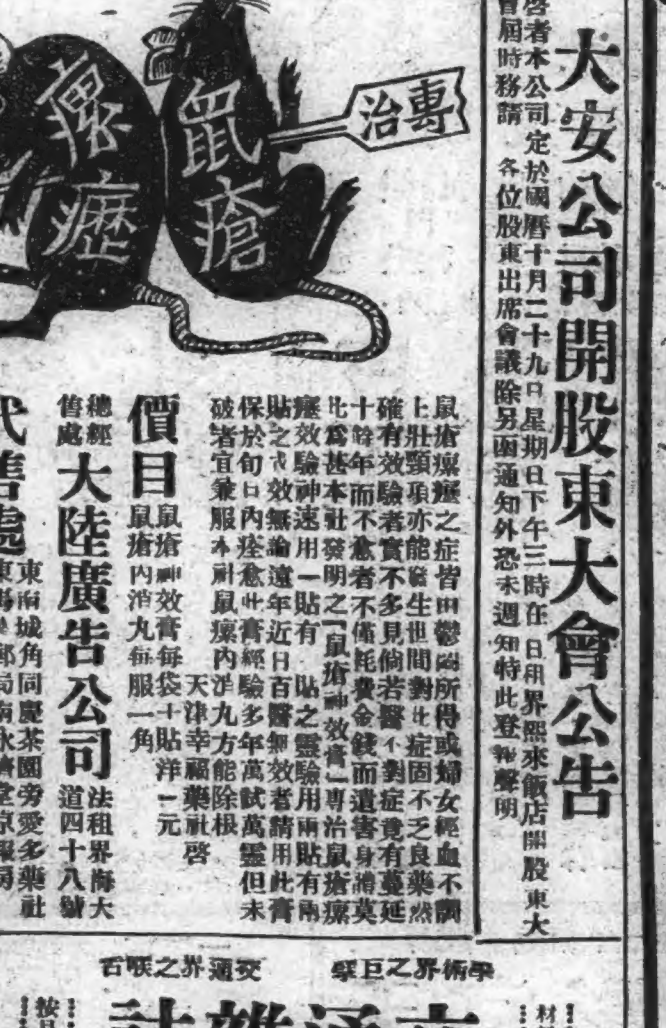 大安公司開股東大會公告
啓者本公司定於國曆十月二十九日星期日下午三時在日租界熙來飯店開股東大
會屆時務請 各位股東出席會議除另函通知外恐未週知特此登報聲明
專治
鼠瘡
瘰癧
鼠瘡瘰癧之症皆由鬱悶所得或婦女經血不調
上壯頸項亦能發生世間對此症固不乏良藥然
確有效驗者實不多見倘若醫不對症竟有蔓延
十餘年而不愈者不僅耗費金錢而遺害身體莫
比爲甚本社發明之「鼠瘡神效膏」專治鼠瘡瘰
癧效驗神速用一貼有一貼之靈驗用兩貼有兩
貼之功效無論遠年近日百醫無效者請用此膏
保於旬日內痊愈此膏經驗多年萬試萬靈但未
破者宜兼服本社鼠瘰內消丸方能除根
天津幸福藥社啓
價目
鼠瘡神效膏每袋十貼洋一元
鼠瘡內消丸每服一角
總經售處
大陸廣告公司
法租界海大道四十八號
代售處
東南城角同慶茶園旁愛多藥社
學術界之巨擘
交通界之喉舌
交通雜誌